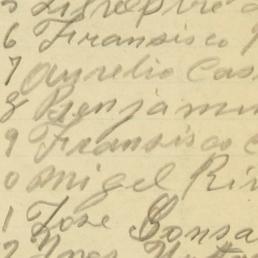 6 Fransisco
7 Aurelio Cas
8 Benjamin
9 Fransisco C
0 Migel Riv
1 Jose Gonsa